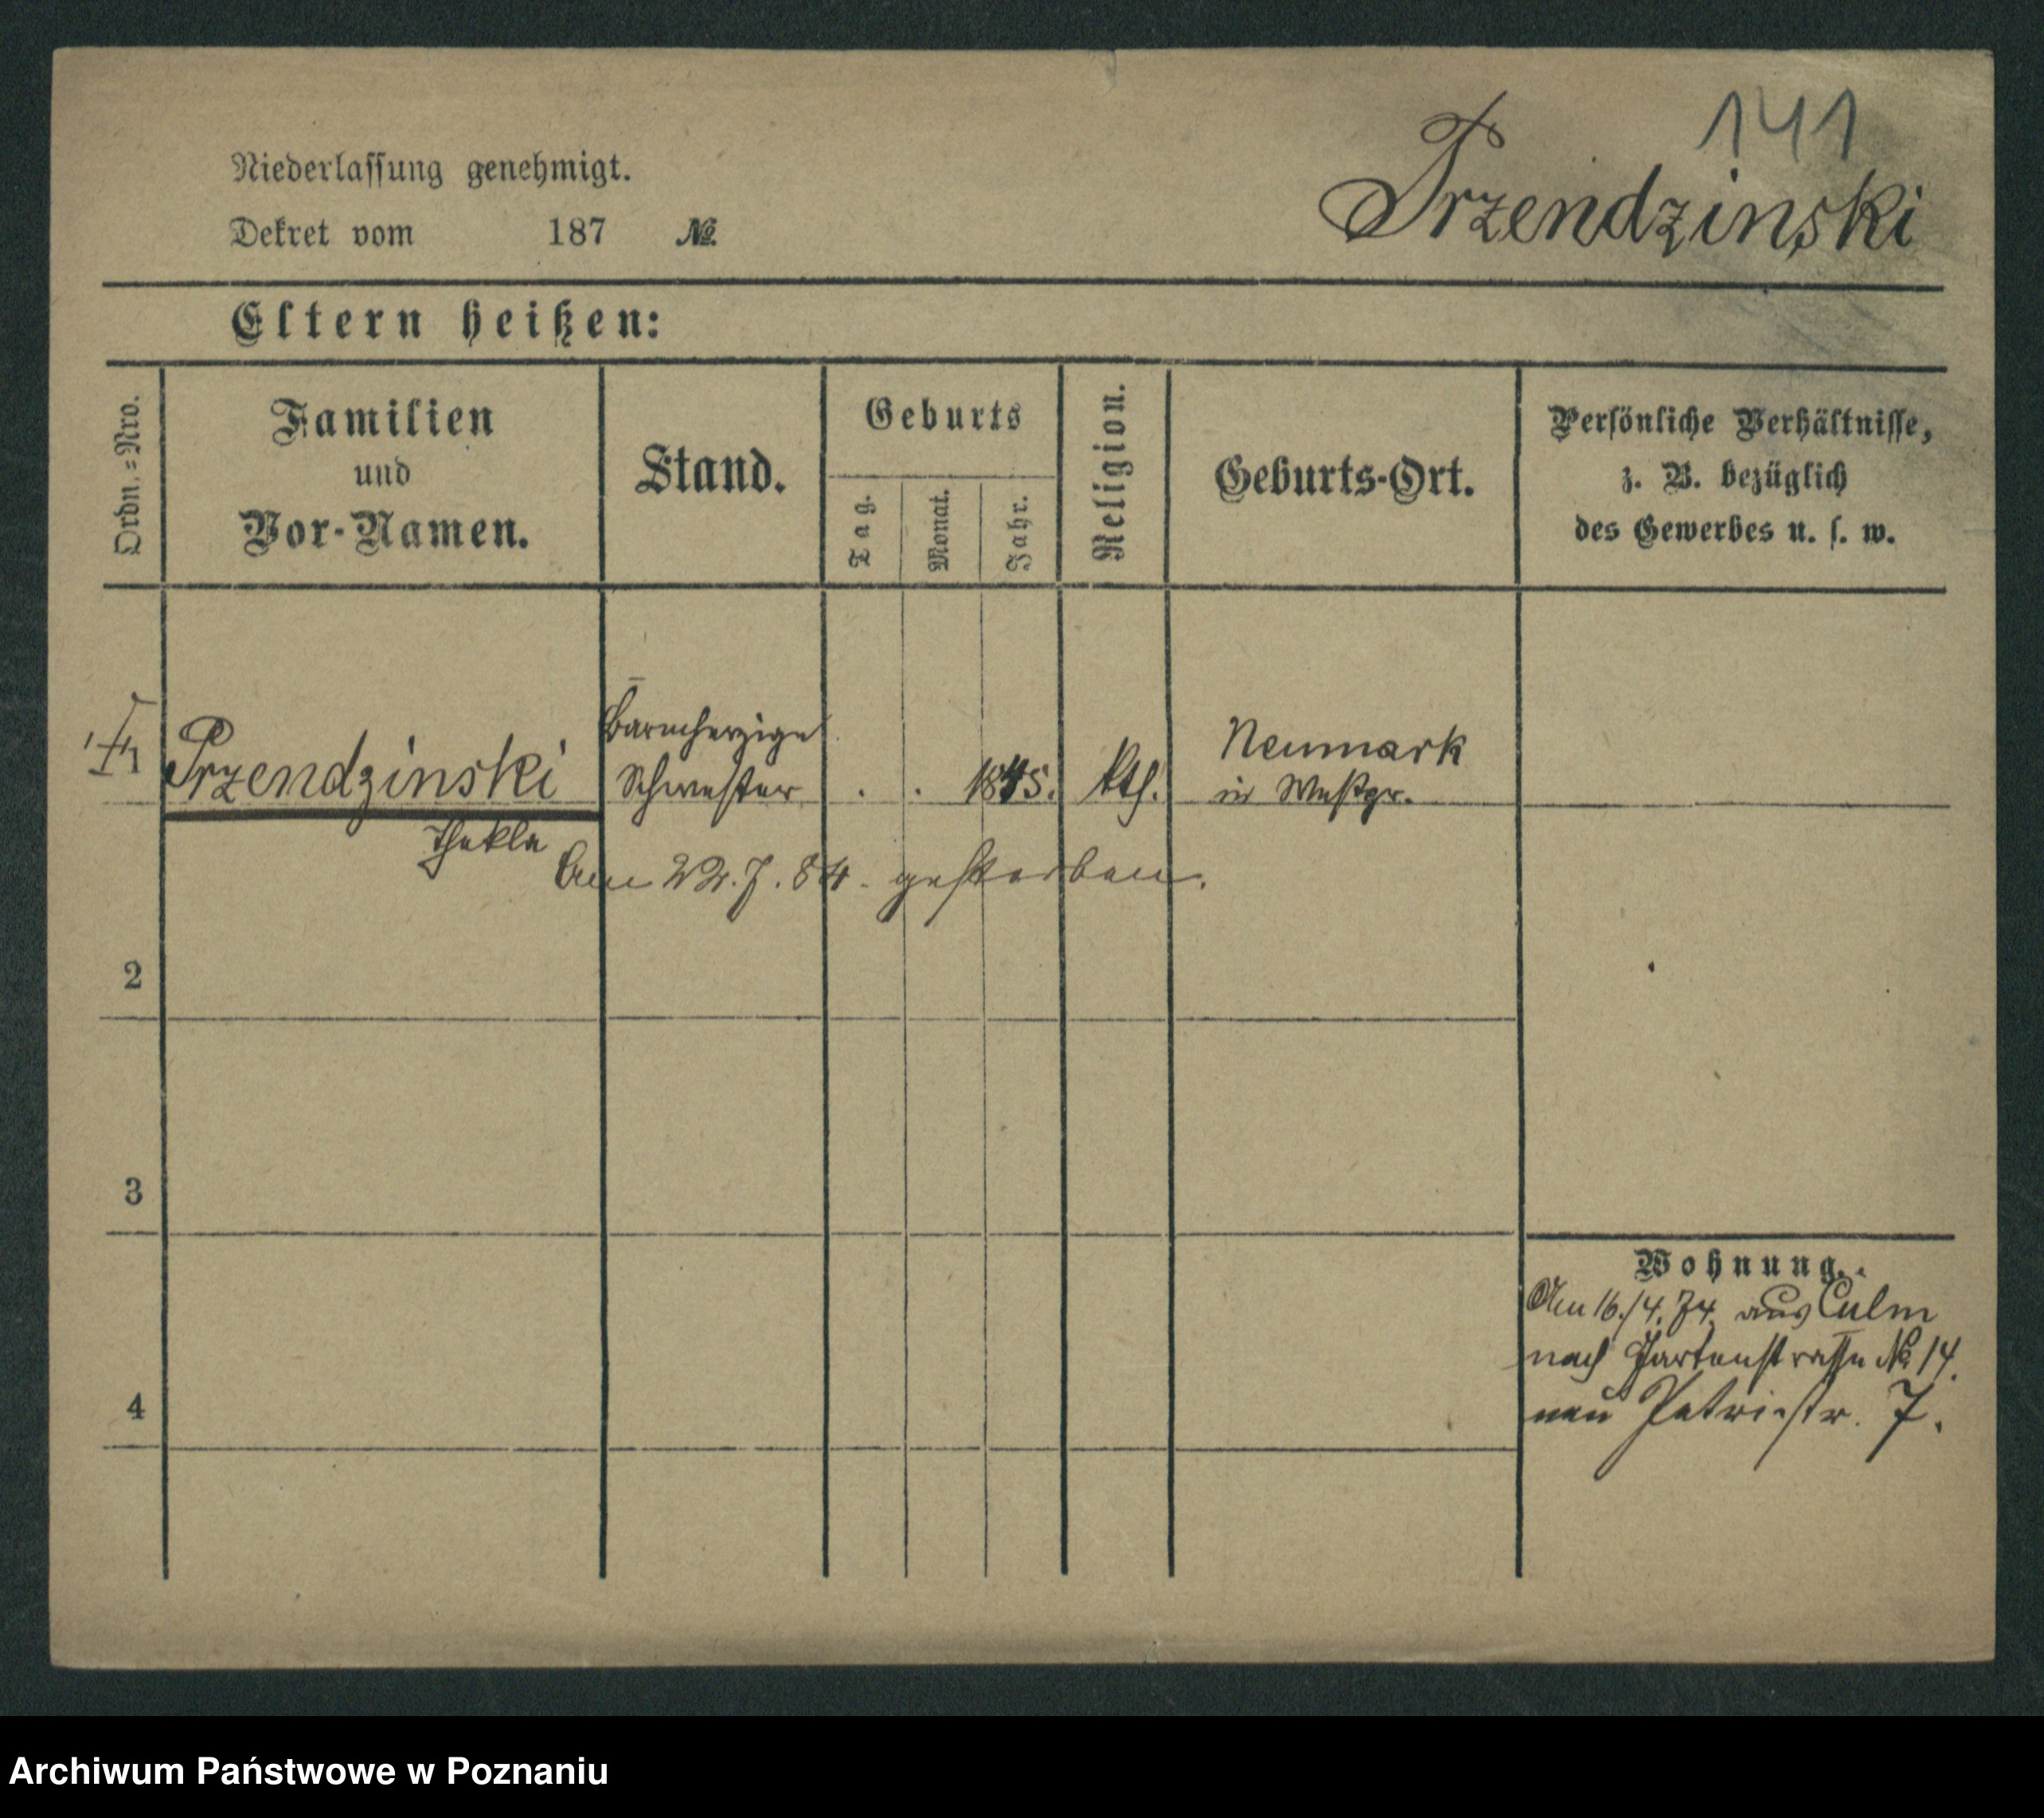 141
Niederlassung genehmigt.
Przendzinski
Dekret vom 187 №
Eltern heißen:
Ordn.=Nro.
Familien
und
Vor-Namen.
Stand.
Geburts
Tag.
Monat.
Jahr.
Religion.
Geburts-Ort.
Persönliche Verhältnisse,
z. B. bezüglich
des Gewerbes u. s. w.
1
Przendzinski
Thekla
Barmherzige
Schwester
. . 1845.
kth.
Neumark
in Westpr.
Am 22.7.84. gestorben.
2
3
4
Wohnung.
Am 16./4.74. aus Culm
nach Gartenstrasse № 14.
neu Petristr. 7.
Archiwum Państwowe w Poznaniu